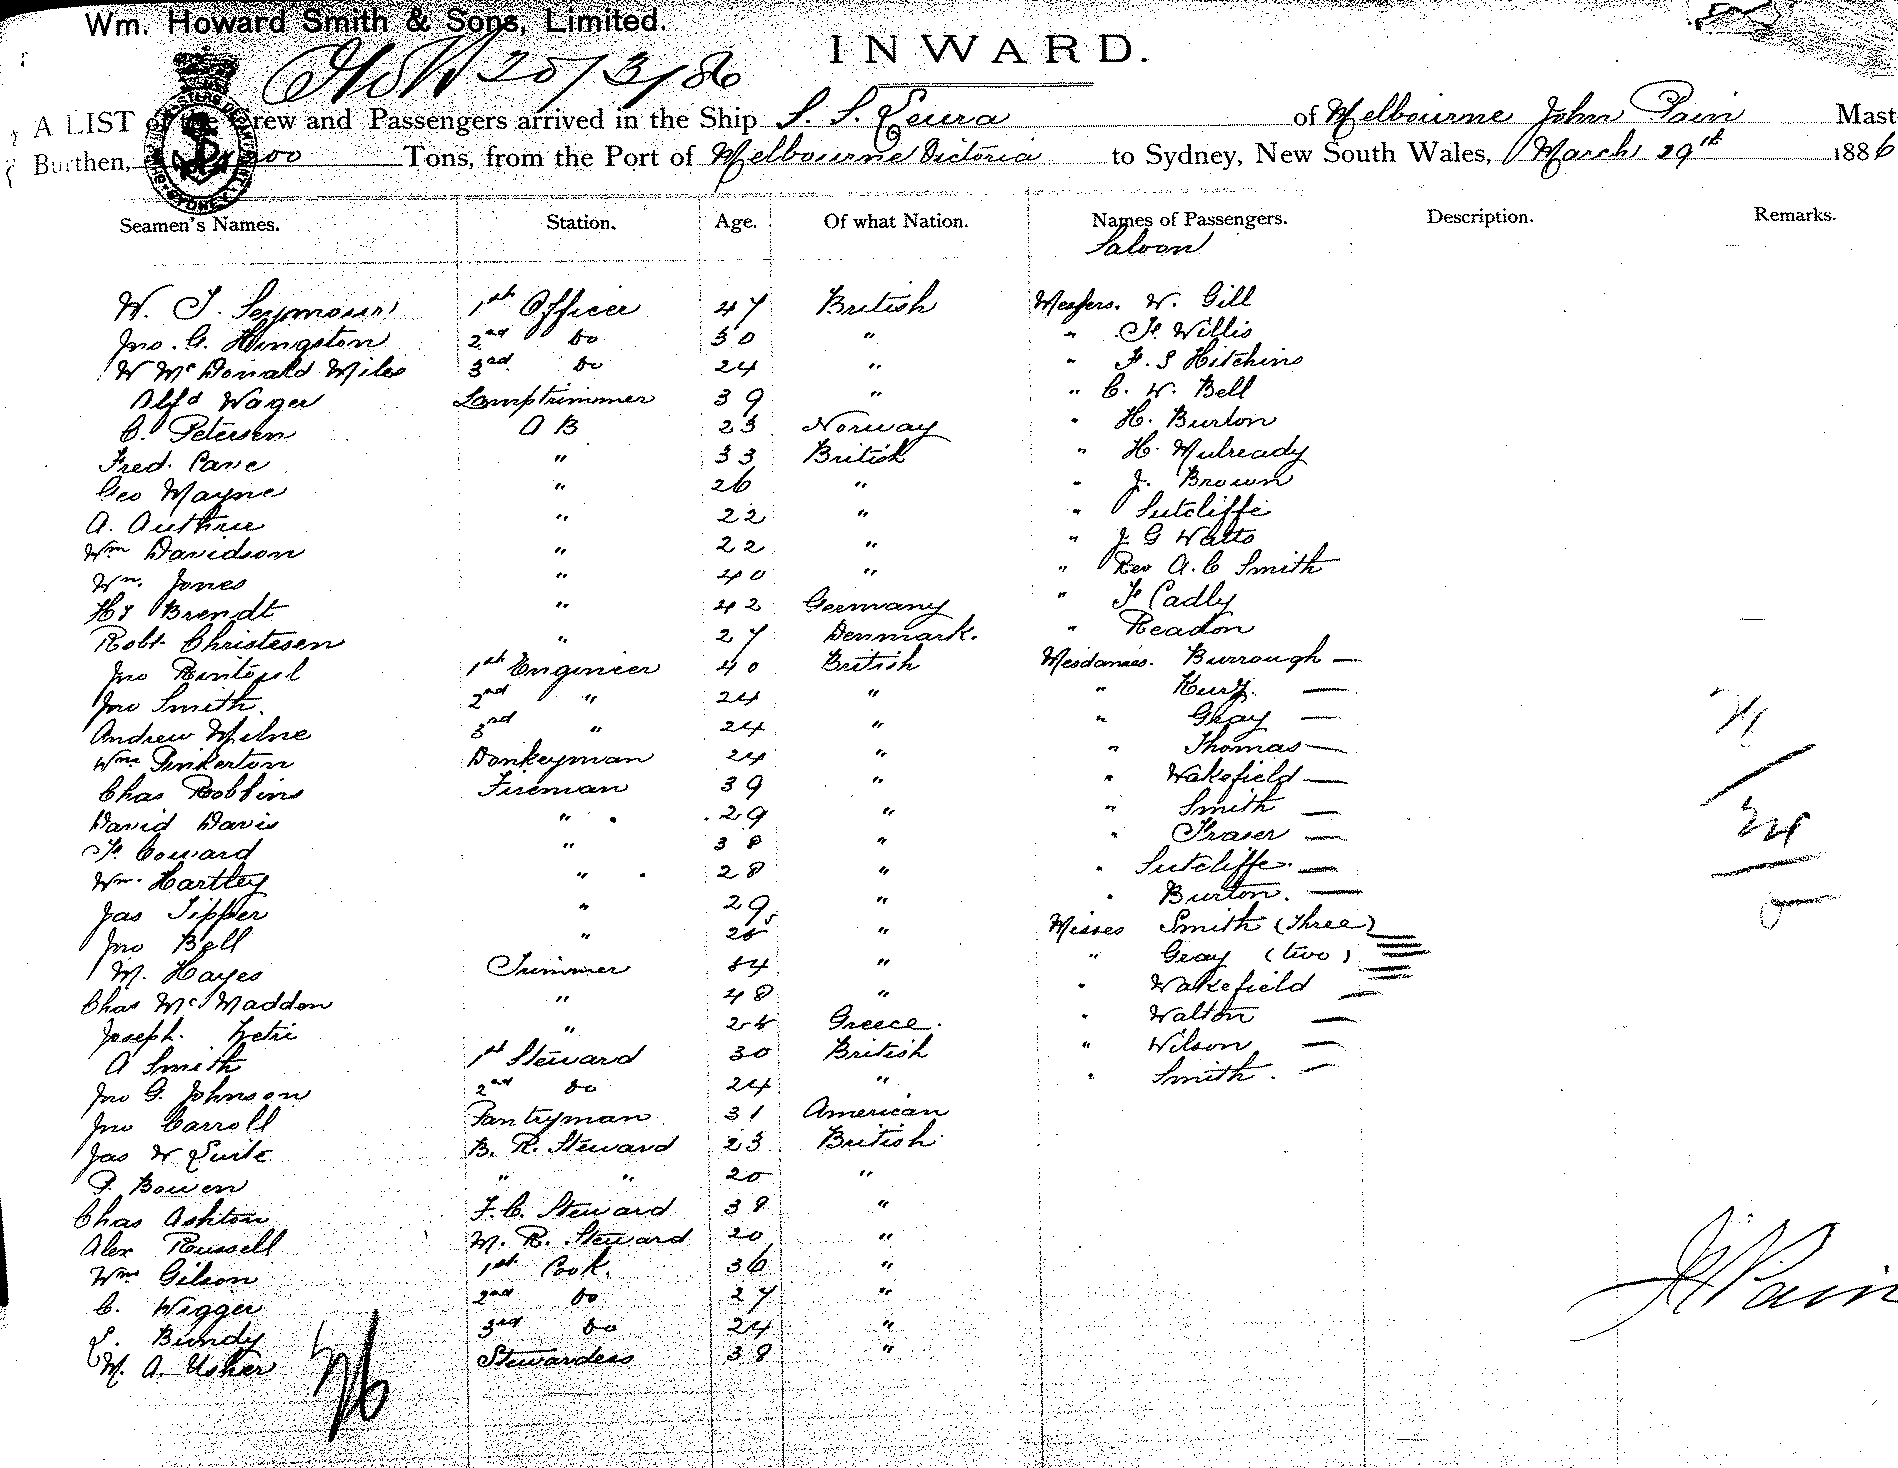 Wm. Howard Smith & Sons, Limited.
INWARD.
20/3/86
A LIST of the Crew and Passengers arrived in the Ship S. S. Leura of Melbourne John Pain Mast
Burthen, Tons, from the Port of Melbourne Victoria to Sydney, New South Wales, March 29th 1886
Seamen's Names. Station. Age. Of what Nation. Names of Passengers. Description. Remarks.
Saloon
W. J. Seymour 1st Officer 47 British Messrs. W. Gill
Jno. G. Hingston 2nd Do 30 " " F. Willis
W McDonald Miles 3rd Do 24 " " F. S Hitchins
Alfd Wager Lamptrimmer 39 " " C. W. Bell
C. Petersen A B 23 Norway " H. Burton
Fred. Cane " 33 British " H. Mulready
Geo Mayne " 26 " " J. Brown
A. Guthrie " 22 " " Sutcliffe
Wm Davidson " 22 " " J. G Watts
Wm. Jones " 40 " " Rev A. C Smith
Hy Brendt " 42 Germany " F Cadly
Robt. Christesen " 27 Denmark. " Readon
Jno 1st Engineer 40 British Mesdames. Burrough —
Jno Smith. 2nd " 24 " " —
Andrew Milne 3rd " 24 " " Gray —
Wm Pinkerton Donkeyman 24 " " Thomas —
Chas Robbins Fireman 39 " " Wakefield —
David Davis " 29 " " Smith —
F. Coward " 38 " " Fraser —
Wm. Hartley " 28 " " Sutcliffe. —
Jas Tipper " 29 " " Burton. —
Jno Bell " " Misses Smith (Three)
M. Hayes Trimmer " " Gray (two)
Chas McMadden " 48 " " Wakefield —
Joseph. " Greece. " Walton —
A Smith 1st Steward 30 British " Wilson —
Jno G. Johnson 2nd Do 24 " " Smith. —
Jno Carroll Pantryman 31 American
Jas W B. R. Steward 23 British
P. Bowen " " 20 "
Chas Ashton F. C. Steward 38 "
Alex Russell M. R. Steward 20 "
Wm Gilson 1st Cook. 36 "
C. Wigger 2nd Do 27 "
L. Bundy 3rd Do 24 "
M. A. Usher Stewardess 38 "
J Pain